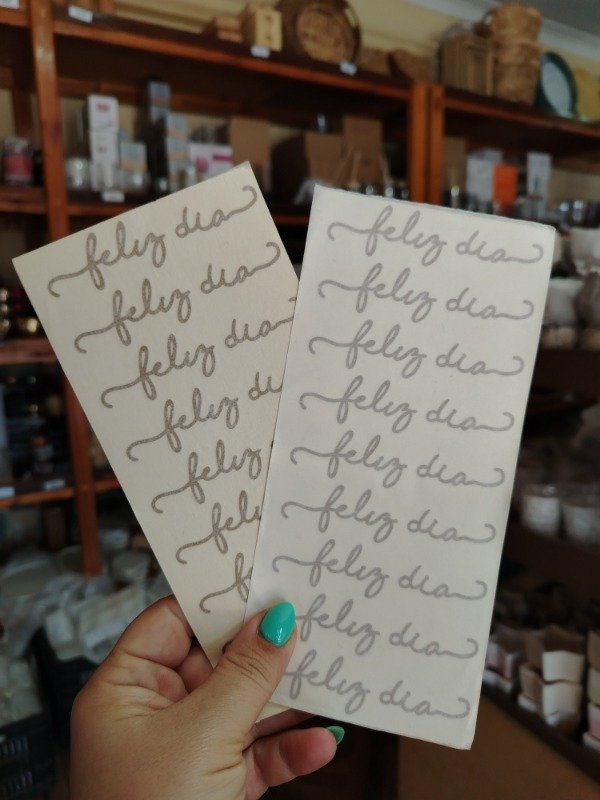 feliz dia
feliz dia
feliz dia
feliz di
feliz
feli
f
feliz dia
feliz dia
feliz dia
feliz dia
feliz dia
feliz dia
feliz dia
feliz dia
feliz dia